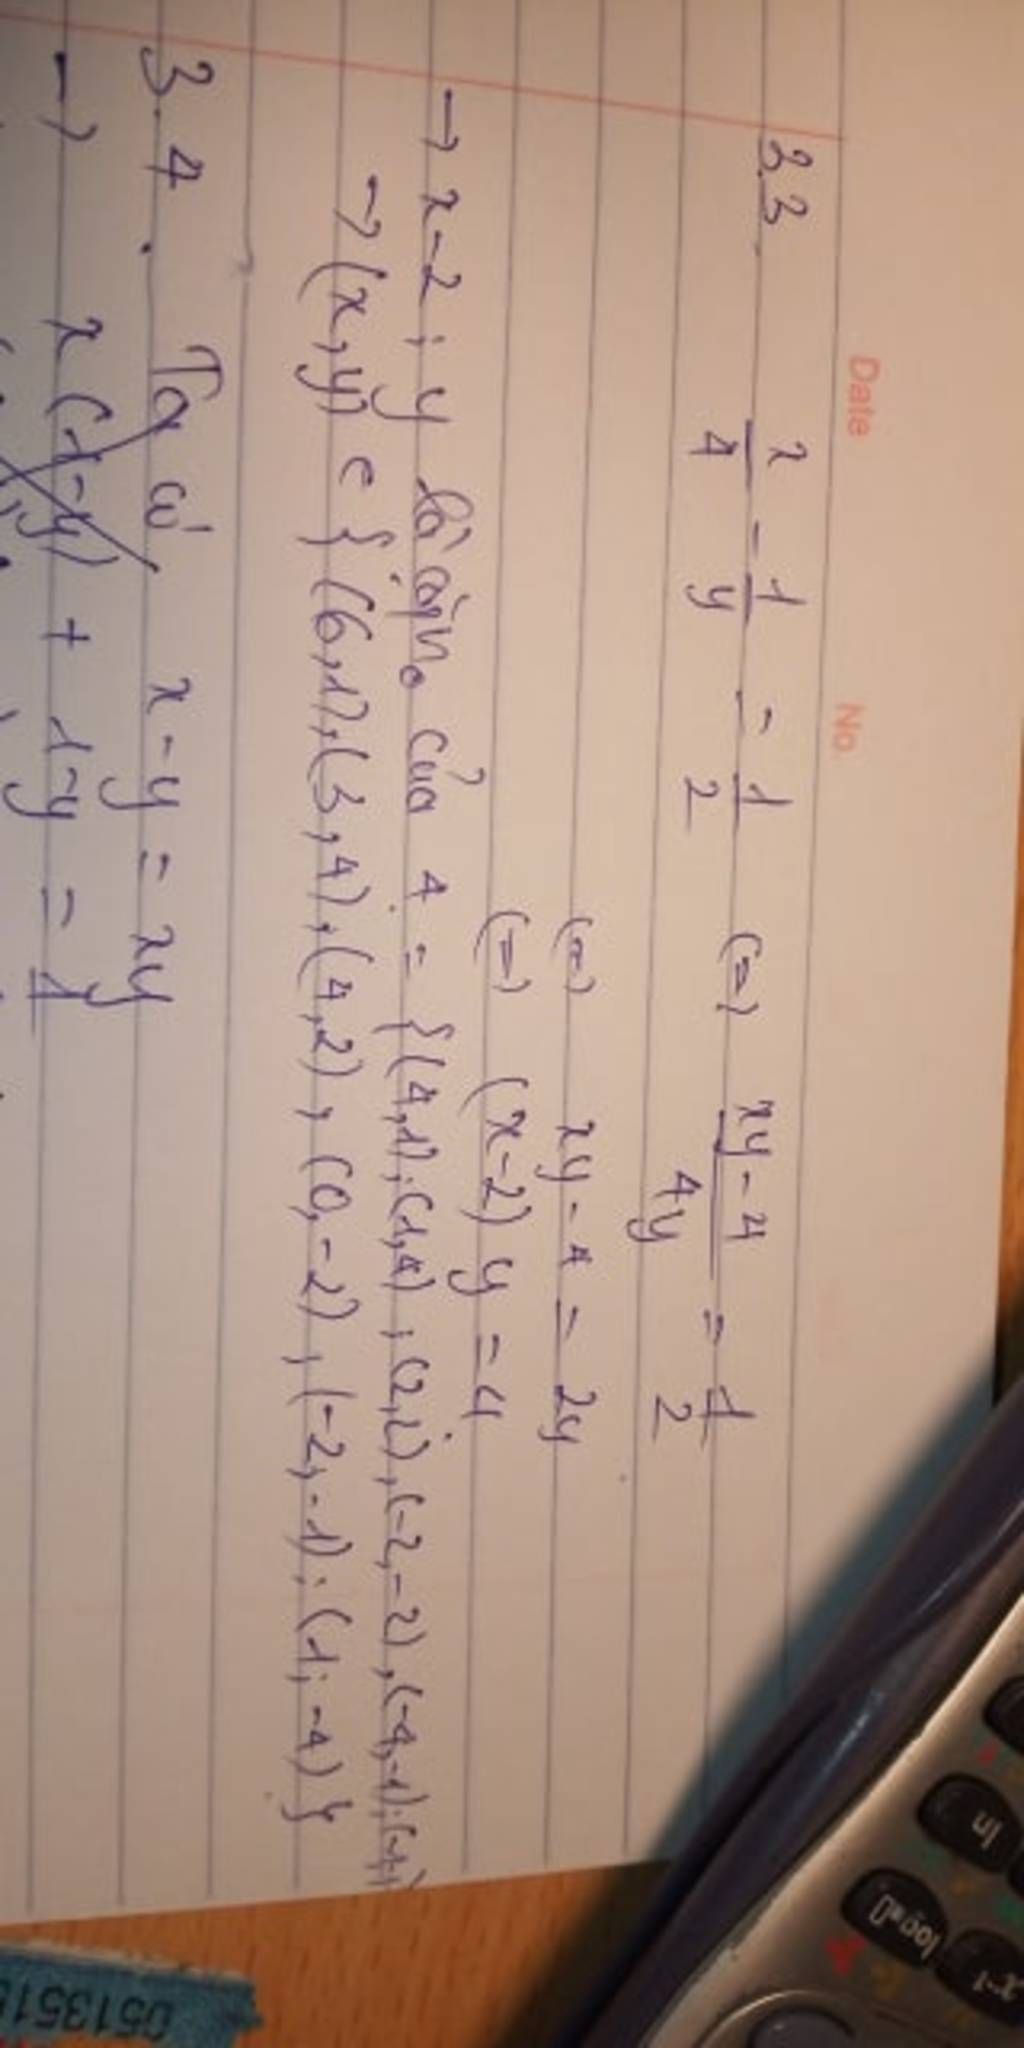 Date No
3.3. x/4 - 1/y = 1/2 (=) xy-4/4y = 1/2
(=) xy - 4 = 2y
(=) (x-2) y = 4
→ x-2 ; y là của 4 = {(4,1);(1,4),(2,2),(-2,-2),(-4,-1);(-1,
→ (x,y) ∈ {(6,1),(3,4),(4,2),(0,-2),(-2,-1);(1;-4)}
3.4. Ta có x-y = xy
→ x(1-y) + 1-y = 1
ln
log■□
x⁻¹
051351